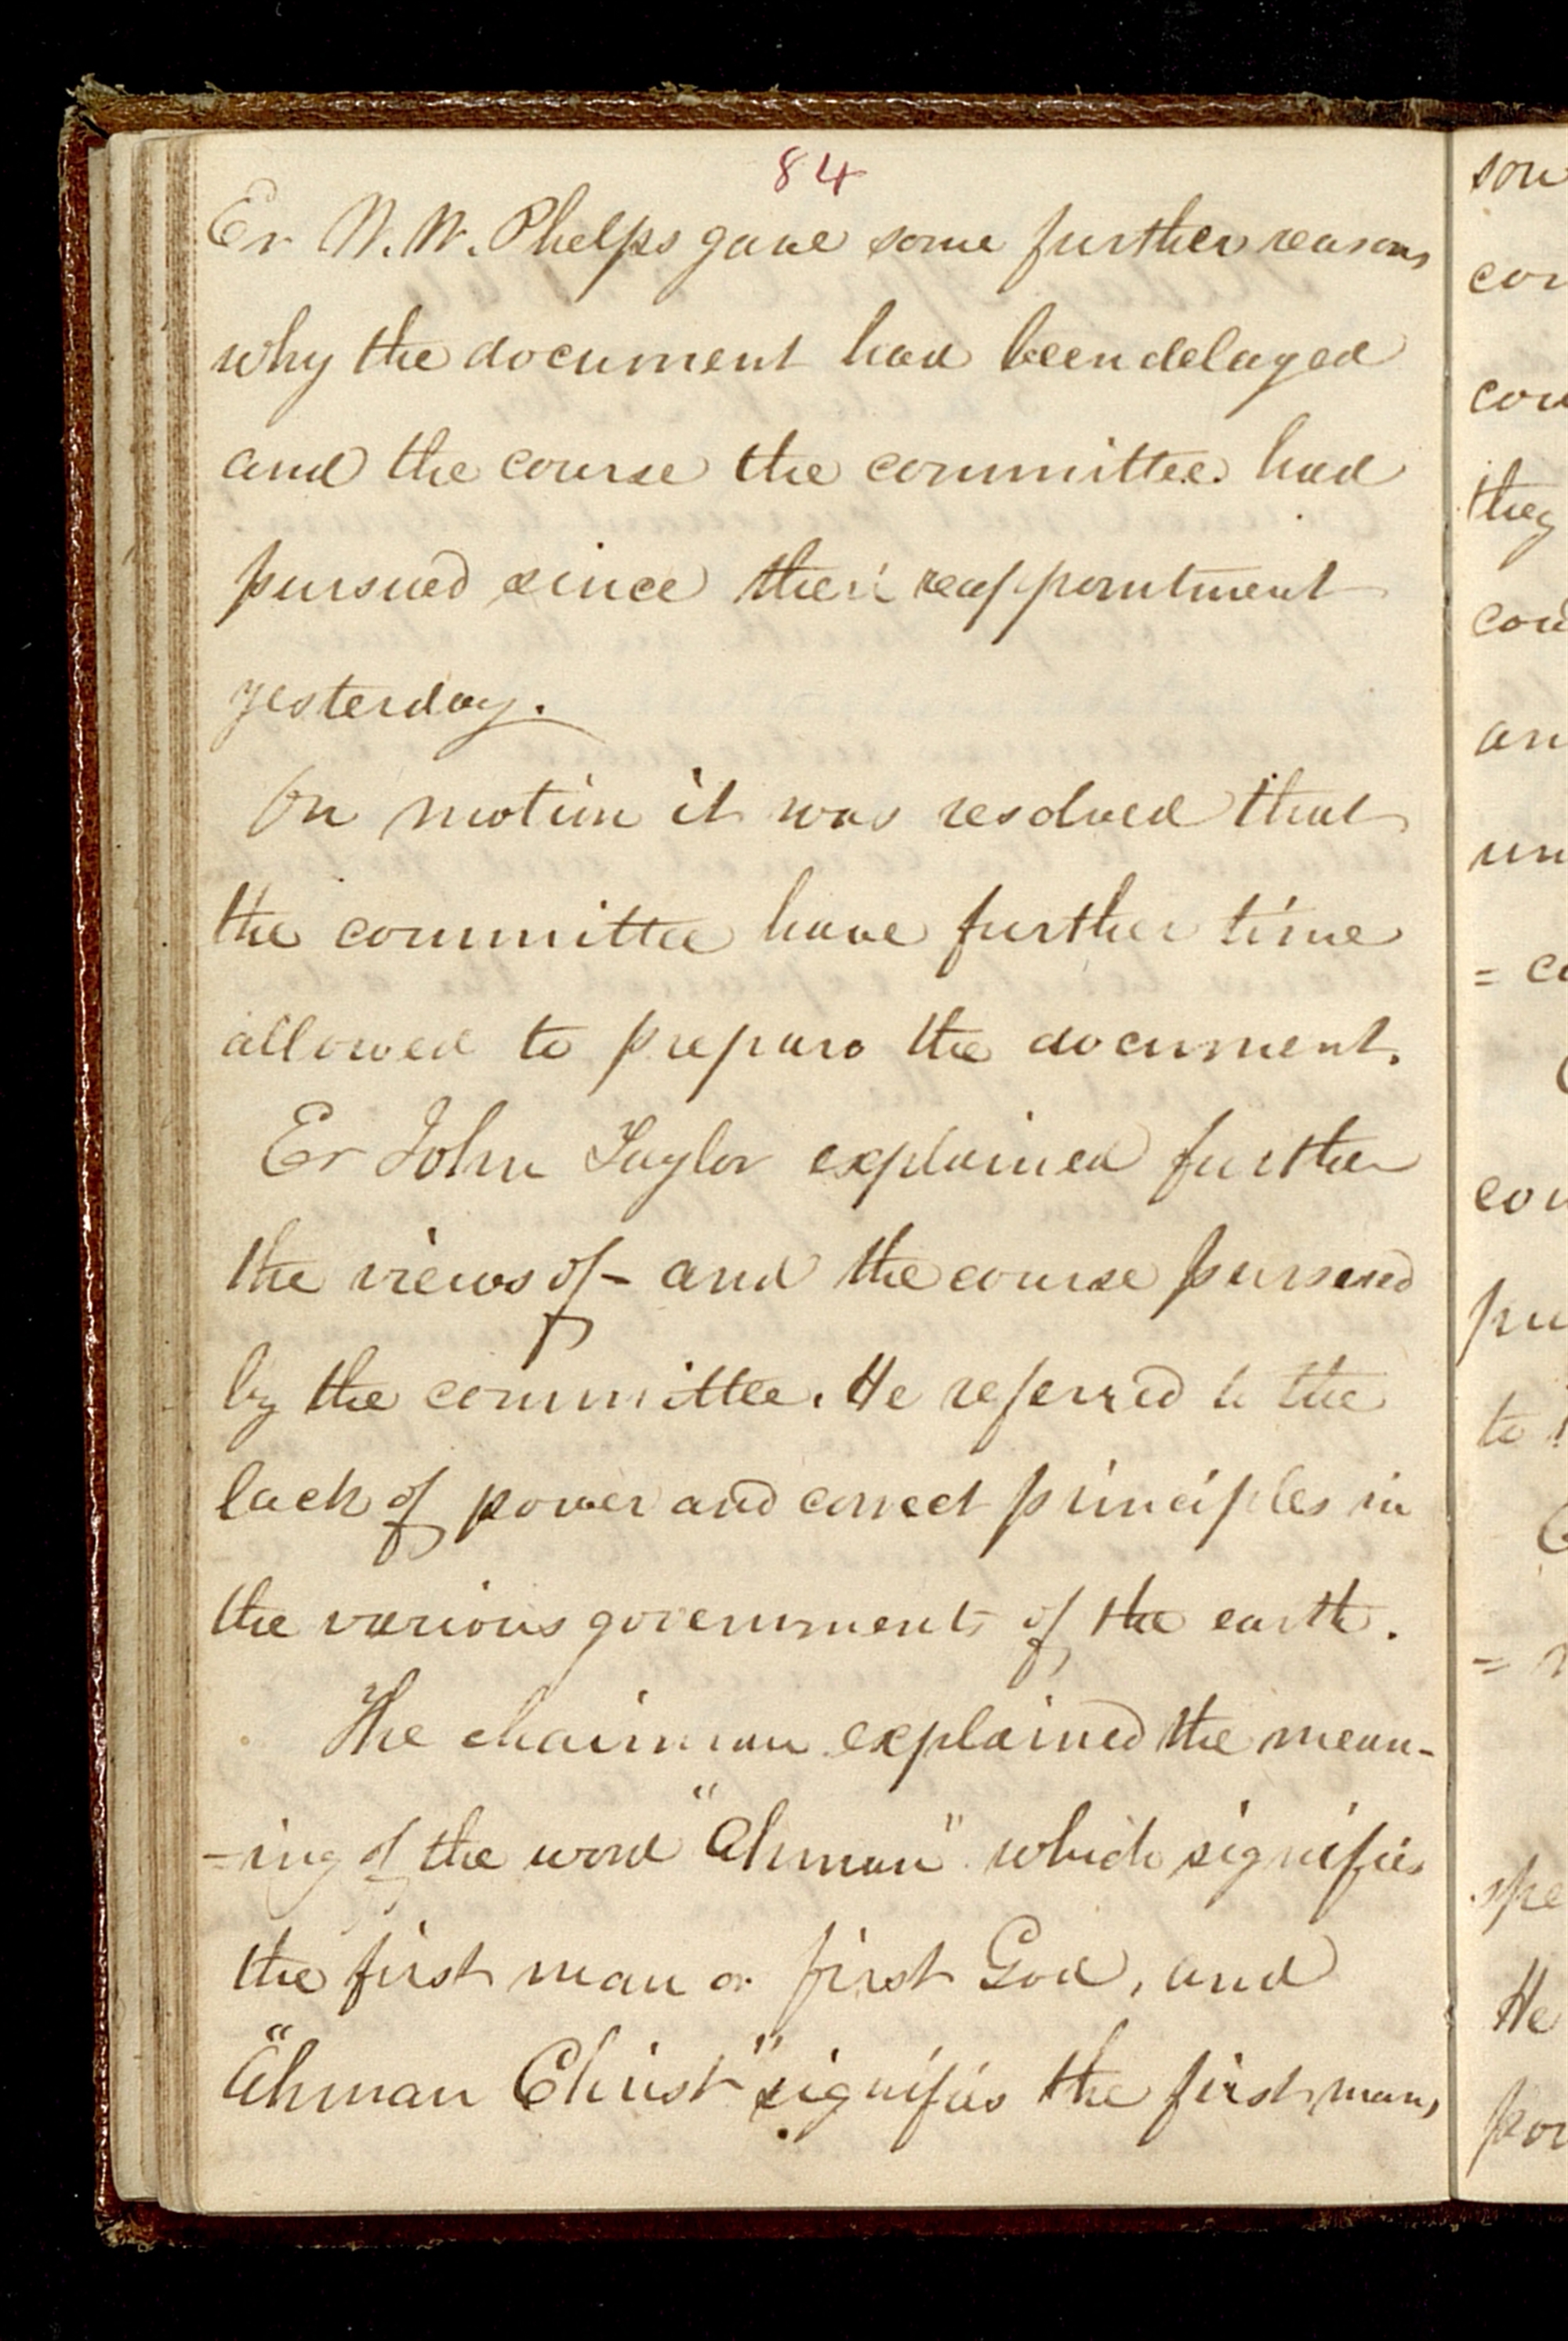 84
Er W. W. Phelps gave some further reasons
why the document had been delayed
and the course the committee had
pursued since their reappointment
yesterday.
On motion it was resolved that
the committee have further time
allowed to prepare the document.
Er John Taylor explained further
the views of - and the course pursued
by the committee. He referred to the
lack of power and correct principles in
the various governments of the earth.
The chairman explained the mean-
=ing of the word "Ahman" which signifies
the first man or first God, and
"Ahman Christ" signifies the first man,
they
= 
to
=
spe
He